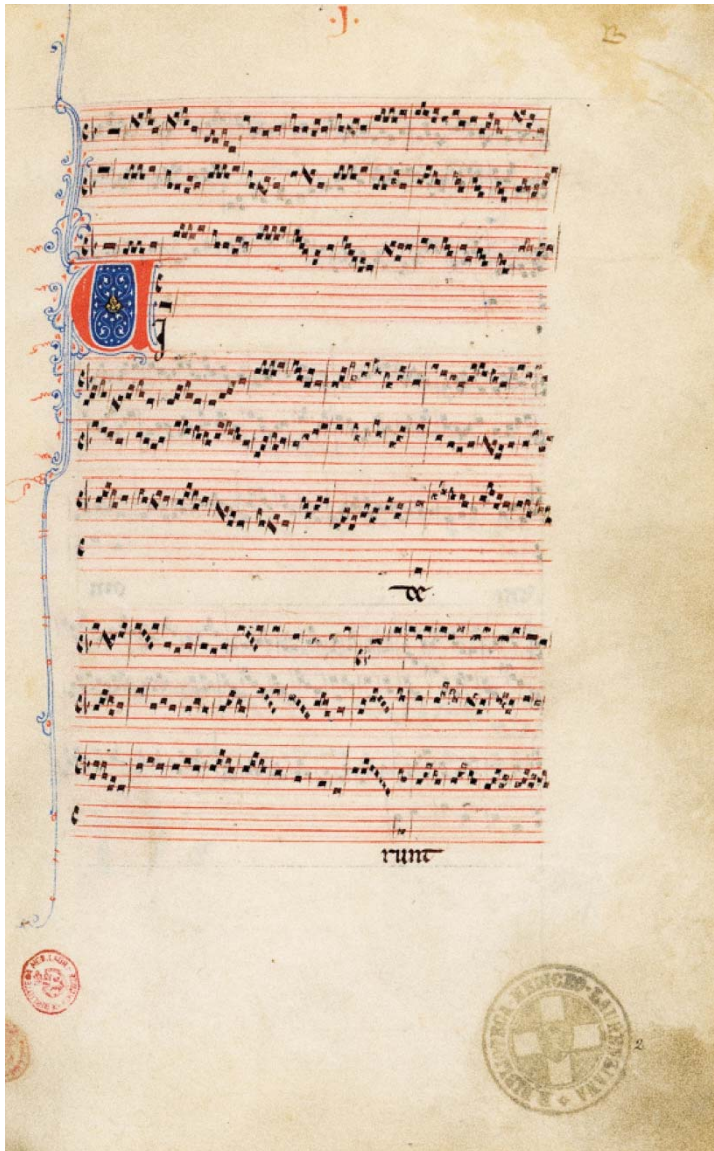 .J.
VJ
de
runt
R. BIBLIOTECA MEDICEO-LAURENZIANA
2